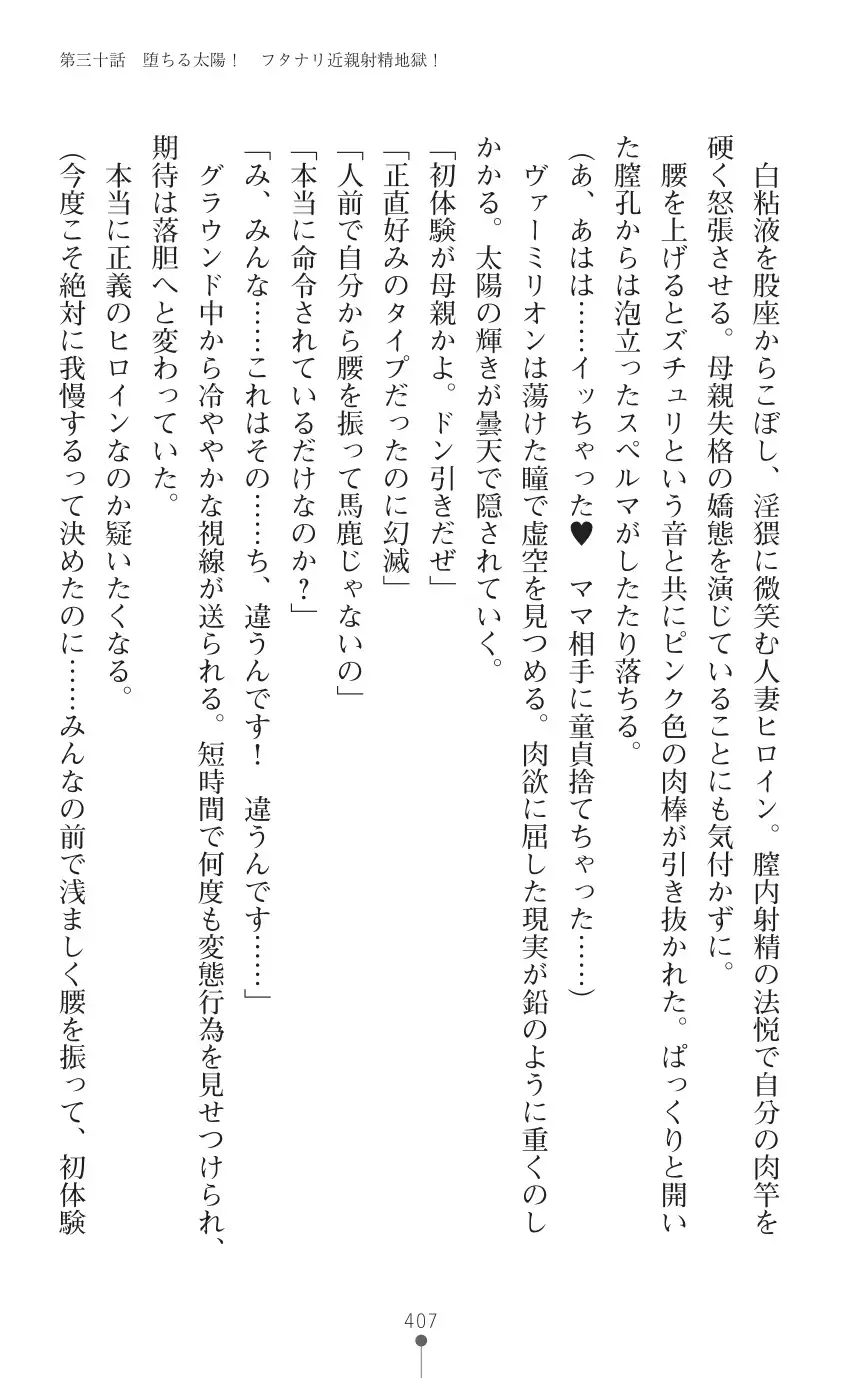 第三十話　堕ちる太陽！　フタナリ近親射精地獄！
　白粘液を股座からこぼし、淫猥に微笑む人妻ヒロイン。膣内射精の法悦で自分の肉竿を
硬く怒張させる。母親失格の嬌態を演じていることにも気付かずに。
　腰を上げるとズチュリという音と共にピンク色の肉棒が引き抜かれた。ぱっくりと開い
た膣孔からは泡立ったスペルマがしたたり落ちる。
（あ、あはは……イッちゃった♥　ママ相手に童貞捨てちゃった……）
　ヴァーミリオンは蕩けた瞳で虚空を見つめる。肉欲に屈した現実が鉛のように重くのし
かかる。太陽の輝きが曇天で隠されていく。
「初体験が母親かよ。ドン引きだぜ」
「正直好みのタイプだったのに幻滅」
「人前で自分から腰を振って馬鹿じゃないの」
「本当に命令されているだけなのか？」
「み、みんな……これはその……ち、違うんです！　違うんです……」
　グラウンド中から冷ややかな視線が送られる。短時間で何度も変態行為を見せつけられ、
期待は落胆へと変わっていた。
　本当に正義のヒロインなのか疑いたくなる。
（今度こそ絶対に我慢するって決めたのに……みんなの前で浅ましく腰を振って、初体験
407